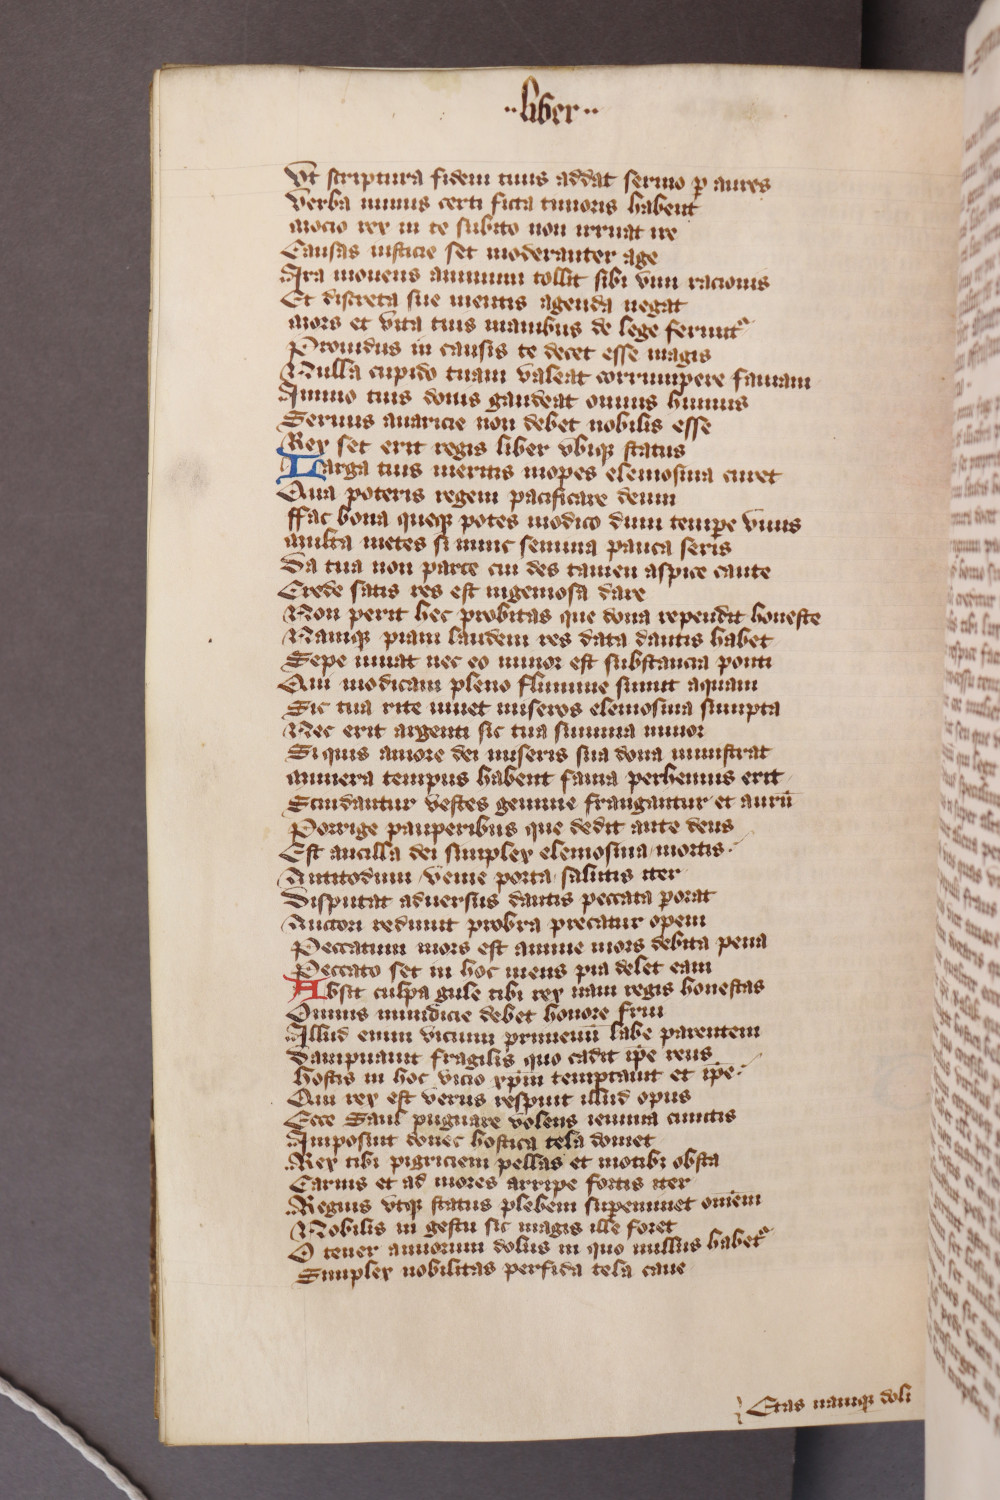 ··liber··
Vt scriptura fidem tuus addat sermo p aures
Verba minus certi ficta timoris habent
mocio rex in te subito non irruat ire
Causas iusticie set moderanter age
Ira mouens animum tollit sibi vim racionis
Et discreta sue mentis agenda negat
mors et vita tuis manibus de lege ferunt᷑
Prouidus in causis te decet esse magis
Nulla cupido tuam valeat corrumpere famam
Immo tuis donis gaudeat omnis humus
Seruus auaricie non debet nobilis esse
Rex set erit regis liber vbiqꝫ status
Larga tuis meritis inopes elemosina curet
Qua poteris regem pacificare deum
ffac bona queqꝫ potes modico dum tempe viuis
multa metes si nunc semina pauca seris
Da tua non parce cui des tamen aspice caute
Crede satis res est ingeniosa dare
Non perit hec probitas que dona rependit honeste
Namqꝫ piam laudem res data dantis habet
Sepe iuuat nec eo minor est substancia ponti
Qui modicam pleno flumine sumit aquam
Sic tua rite iuuet miseros elemosina sumpta
Nec erit argenti sic tua summa minor
Si quis amore dei miseris sua dona ministrat
munera tempus habent fama perhennis erit
Scindantur vestes gemme frangantur et aurū
Porrige pauperibus que dedit ante deus
Est ancilla dei simplex elemosina mortis
Antitodum venie porta salutis iter
Disputat aduersus dantis peccata porat
Auctori redimit probra precatur opem
Peccatum mors est anime mors debita pena
Peccato set in hoc mens pia delet eam
Absit culpa gule tibi rex nam regis honestas
Omnis mundicie debet honore frui
Illud enim vicium primeuū labe parentem
Dampnauit fragilis quo cadit ip̄e reus
hostis in hoc vicio xp̄m temptauit et ip̄e
Qui rex est verus respuit illud opus
Ecce Saul pugnare volens ieiunia cunctis
Imposuit donec hostica tela domet
Rex tibi pigriciem pellas et motibi obsta
Carnis et ad mores arripe fortis iter
Regius vtqꝫ status plebem supeminet om̄em
Nobilis in gestu sic magis ille foret
O tener annorum dolus in quo nullus habet᷑
Simplex nobilitas perfida tela caue
Etas namqꝫ doli